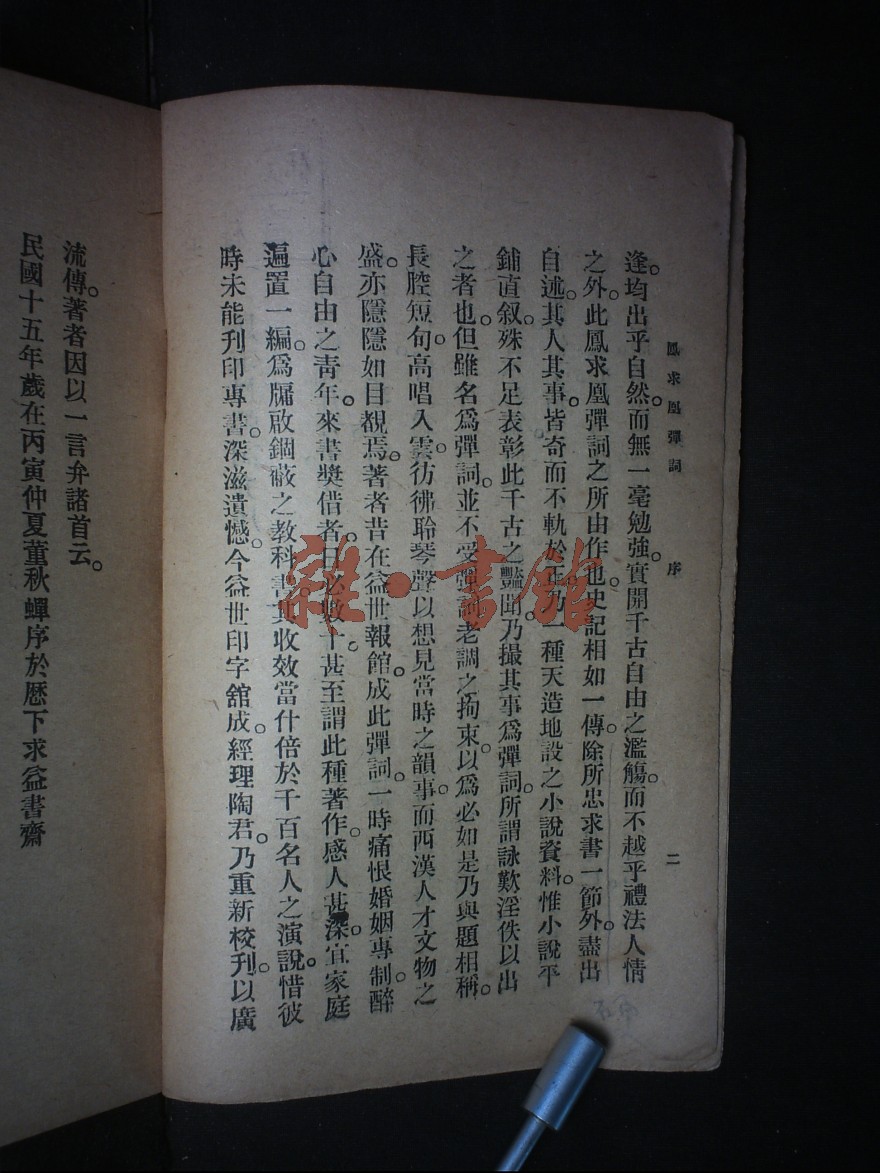 鳳求凰彈詞　序　二
逢。均出乎自然。而無一毫勉強。實開千古自由之濫觴。而不越乎禮法人情
之外。此鳳求凰彈詞之所由作也。史記相如一傳。除所忠求書一節外。盡出
自述。其人其事。皆奇而不軌於正。乃一種天造地設之小說資料。惟小說平
鋪直叙。殊不足表彰此千古之豔聞。乃撮其事爲彈詞。所謂詠歎淫佚以出
之者也。但雖名爲彈詞。並不受彈詞老調之拘束。以爲必如是乃與題相稱。
長腔短句。高唱入雲。彷彿聆琴聲以想見當時之韻事。而西漢人才文物之
盛。亦隱隱如目覩焉。著者昔在益世報館。成此彈詞。一時痛恨婚姻專制。醉
心自由之青年。來書獎借者。日必數十。甚至謂此種著作。感人甚深。宜家庭
遍置一編。爲牖啟錮蔽之教科書。其收效當什倍於千百名人之演說。惜彼
時未能刋印專書。深滋遺憾。今益世印字舘成。經理陶君。乃重新校刋。以廣
流傳。著者因以一言弁諸首云。
民國十五年歲在丙寅仲夏董秋蟬序於歷下求益書齋
雜·書館